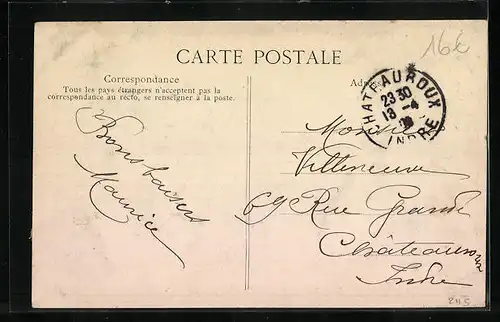 16€
CARTE POSTALE
Correspondance
Tous les pays étrangers n'acceptent pas la
correspondance au recto, se renseigner à la poste.
Bons baisers
Maurice
CHATEAUROUX
23 30
13 -4
INDRE
Monsieur
Villeneuve
69 Rue Grande
Châteauroux
Indre